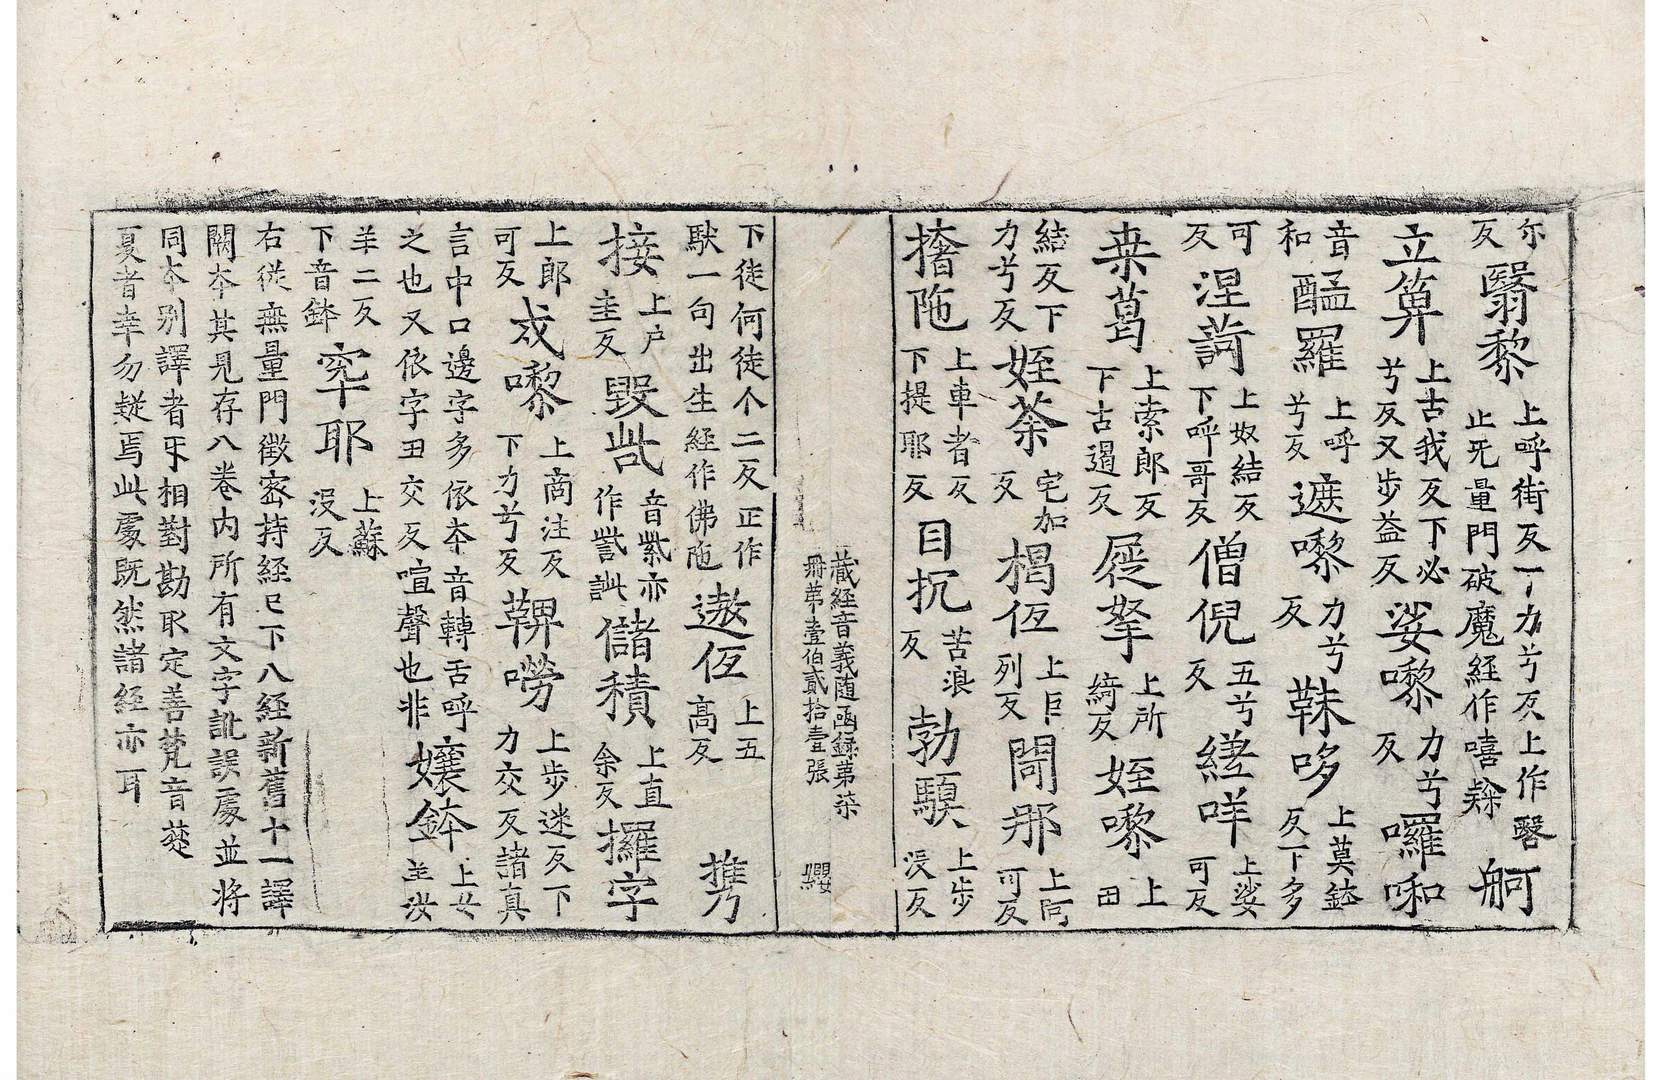 尒反翳黎上呼街反下力兮反上作瞖止无量門破魔經作嘻𨽻舸
立箅上古我反下必兮反又步益反娑嚟力兮反囉啝
音和醖羅上呼兮反遮嚟力兮反靺哆上莫鉢反下多
可反涅䛱上奴結反下呼哥反僧倪五兮反縒咩上娑可反
桒葛上索郎反下古遏反屣拏上所綺反姪嚟上田
結反下力兮反姪荼宅加反楬仾上巨列反閜那上向可反
撦陁上車者反下提耶反目抗苦浪反勃馶上步沒反
藏經音義随函録第柒冊第壹伯貳拾壹張 纓
下徒何徒个二反正作馱一句出生經作佛陁遨仾上五高反攜
接上户圭反毀呰音紫亦作訾訿儲積上直余反攞字
上郎可反戍嚟上商注反下力兮反鞞嘮上步迷反下力交反諸真
言中口邊字多依夲音轉舌呼之也又依字丑交反喧聲也非孃鉢上女羊二反
下音鉢窣耶上蘇没反
右從無量門微密持經已下八經新舊十一譯
闕夲其見存八卷內所有文字訛誤處並将
同夲别譯者牙相對勘取定善梵音楚
夏者幸勿疑焉此處既然諸經亦耳